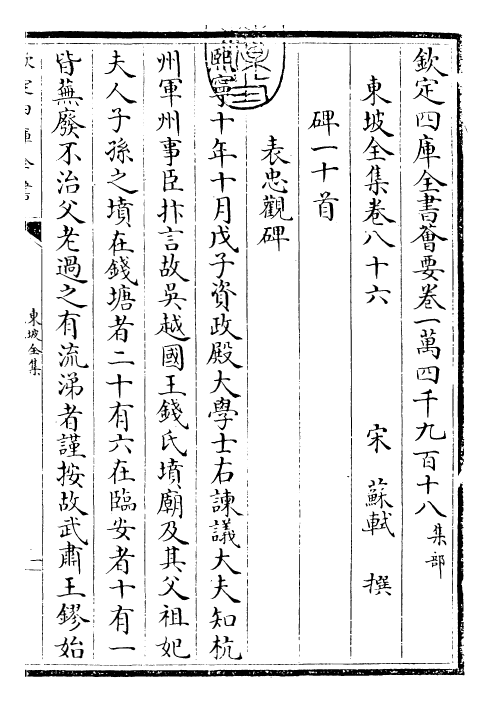 欽定四庫全書薈要卷一萬四千九百十八 集部
東坡全集卷八十六
宋 蘇軾 撰
碑一十首
表忠觀碑
熙寧十年十月戊子資政殿大學士右諫議大夫知杭
州軍州事臣抃言故吳越國王錢氏墳廟及其父祖妃
夫人子孫之墳在錢塘者二十有六在臨安者十有一
皆蕪廢不治父老過之有流涕者謹按故武肅王鏐始
欽定四庫全書
東坡全集